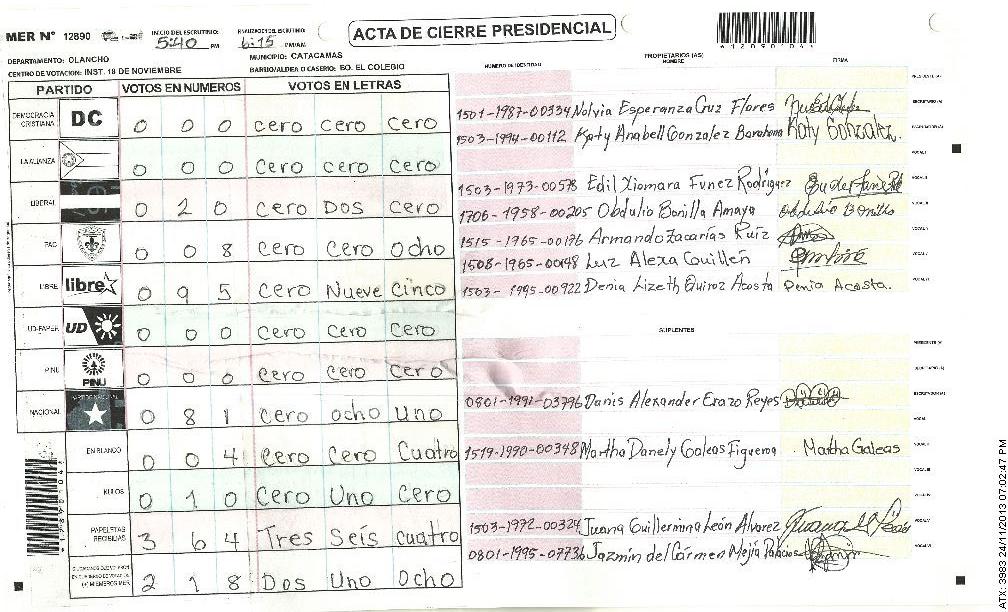 MER Nº 12890
INICIO DEL ESCRUTINIO: 5:40 PM
FINALIZACION DEL ESCRUTINIO: 6:15 PM/AM
ACTA DE CIERRE PRESIDENCIAL
DEPARTAMENTO: OLANCHO
MUNICIPIO: CATACAMAS
CENTRO DE VOTACION: INST. 18 DE NOVIEMBRE
BARRIO/ALDEA O CASERIO: BO. EL COLEGIO
PARTIDO VOTOS EN NUMEROS VOTOS EN LETRAS
DEMOCRACIA CRISTIANA DC 0 0 0 Cero Cero Cero
LA ALIANZA 0 0 0 Cero Cero Cero
LIBERAL 0 2 0 Cero Dos Cero
PAC 0 0 8 Cero Cero Ocho
LIBRE libre 0 9 5 Cero Nueve Cinco
UD-FAPER UD 0 0 0 Cero Cero Cero
PINU PINU 0 0 0 Cero Cero Cero
NACIONAL 0 8 1 Cero Ocho Uno
EN BLANCO 0 0 4 Cero Cero Cuatro
NULOS 0 1 0 Cero Uno Cero
PAPELETAS RECIBIDAS 3 6 4 Tres Seis Cuatro
2 1 8 Dos Uno Ocho
NUMERO DE IDENTIDAD PROPIETARIOS (AS) NOMBRE FIRMA
PRESIDENTE (A)
1501-1987-00334 Nolvia Esperanza Cruz Flores SECRETARIO (A)
1503-1994-00112 Katy Anabell Gonzalez Barahona Katy Gonzalez. ESCRUTADOR (A)
VOCAL I
1503-1973-00578 Edil Xiomara Funez Rodríguez VOCAL II
1706-1958-00205 Obdulio Bonilla Amaya Obdulio Bonilla VOCAL III
1515-1965-00176 Armando Zacarías Ruiz
1508-1965-00148 Luz Alexa Guillen
1503-1995-00922 Denia Lizeth Quiroz Acosta Denia Acosta.
SUPLENTES
PRESIDENTE (A)
SECRETARIO (A)
0801-1991-03796 Danis Alexander Erazo Reyes ESCRUTADOR (A)
VOCAL I
1519-1990-00348 Martha Danely Galeas Figueroa Martha Galeas VOCAL II
VOCAL III
VOCAL IV
1503-1972-00324 Juana Guillermina León Alvarez VOCAL V
0801-1995-07736 Jazmin del Cármen Mejía Palacios VOCAL VI
ATX: 3983 24/11/2013 07:02:47 PM